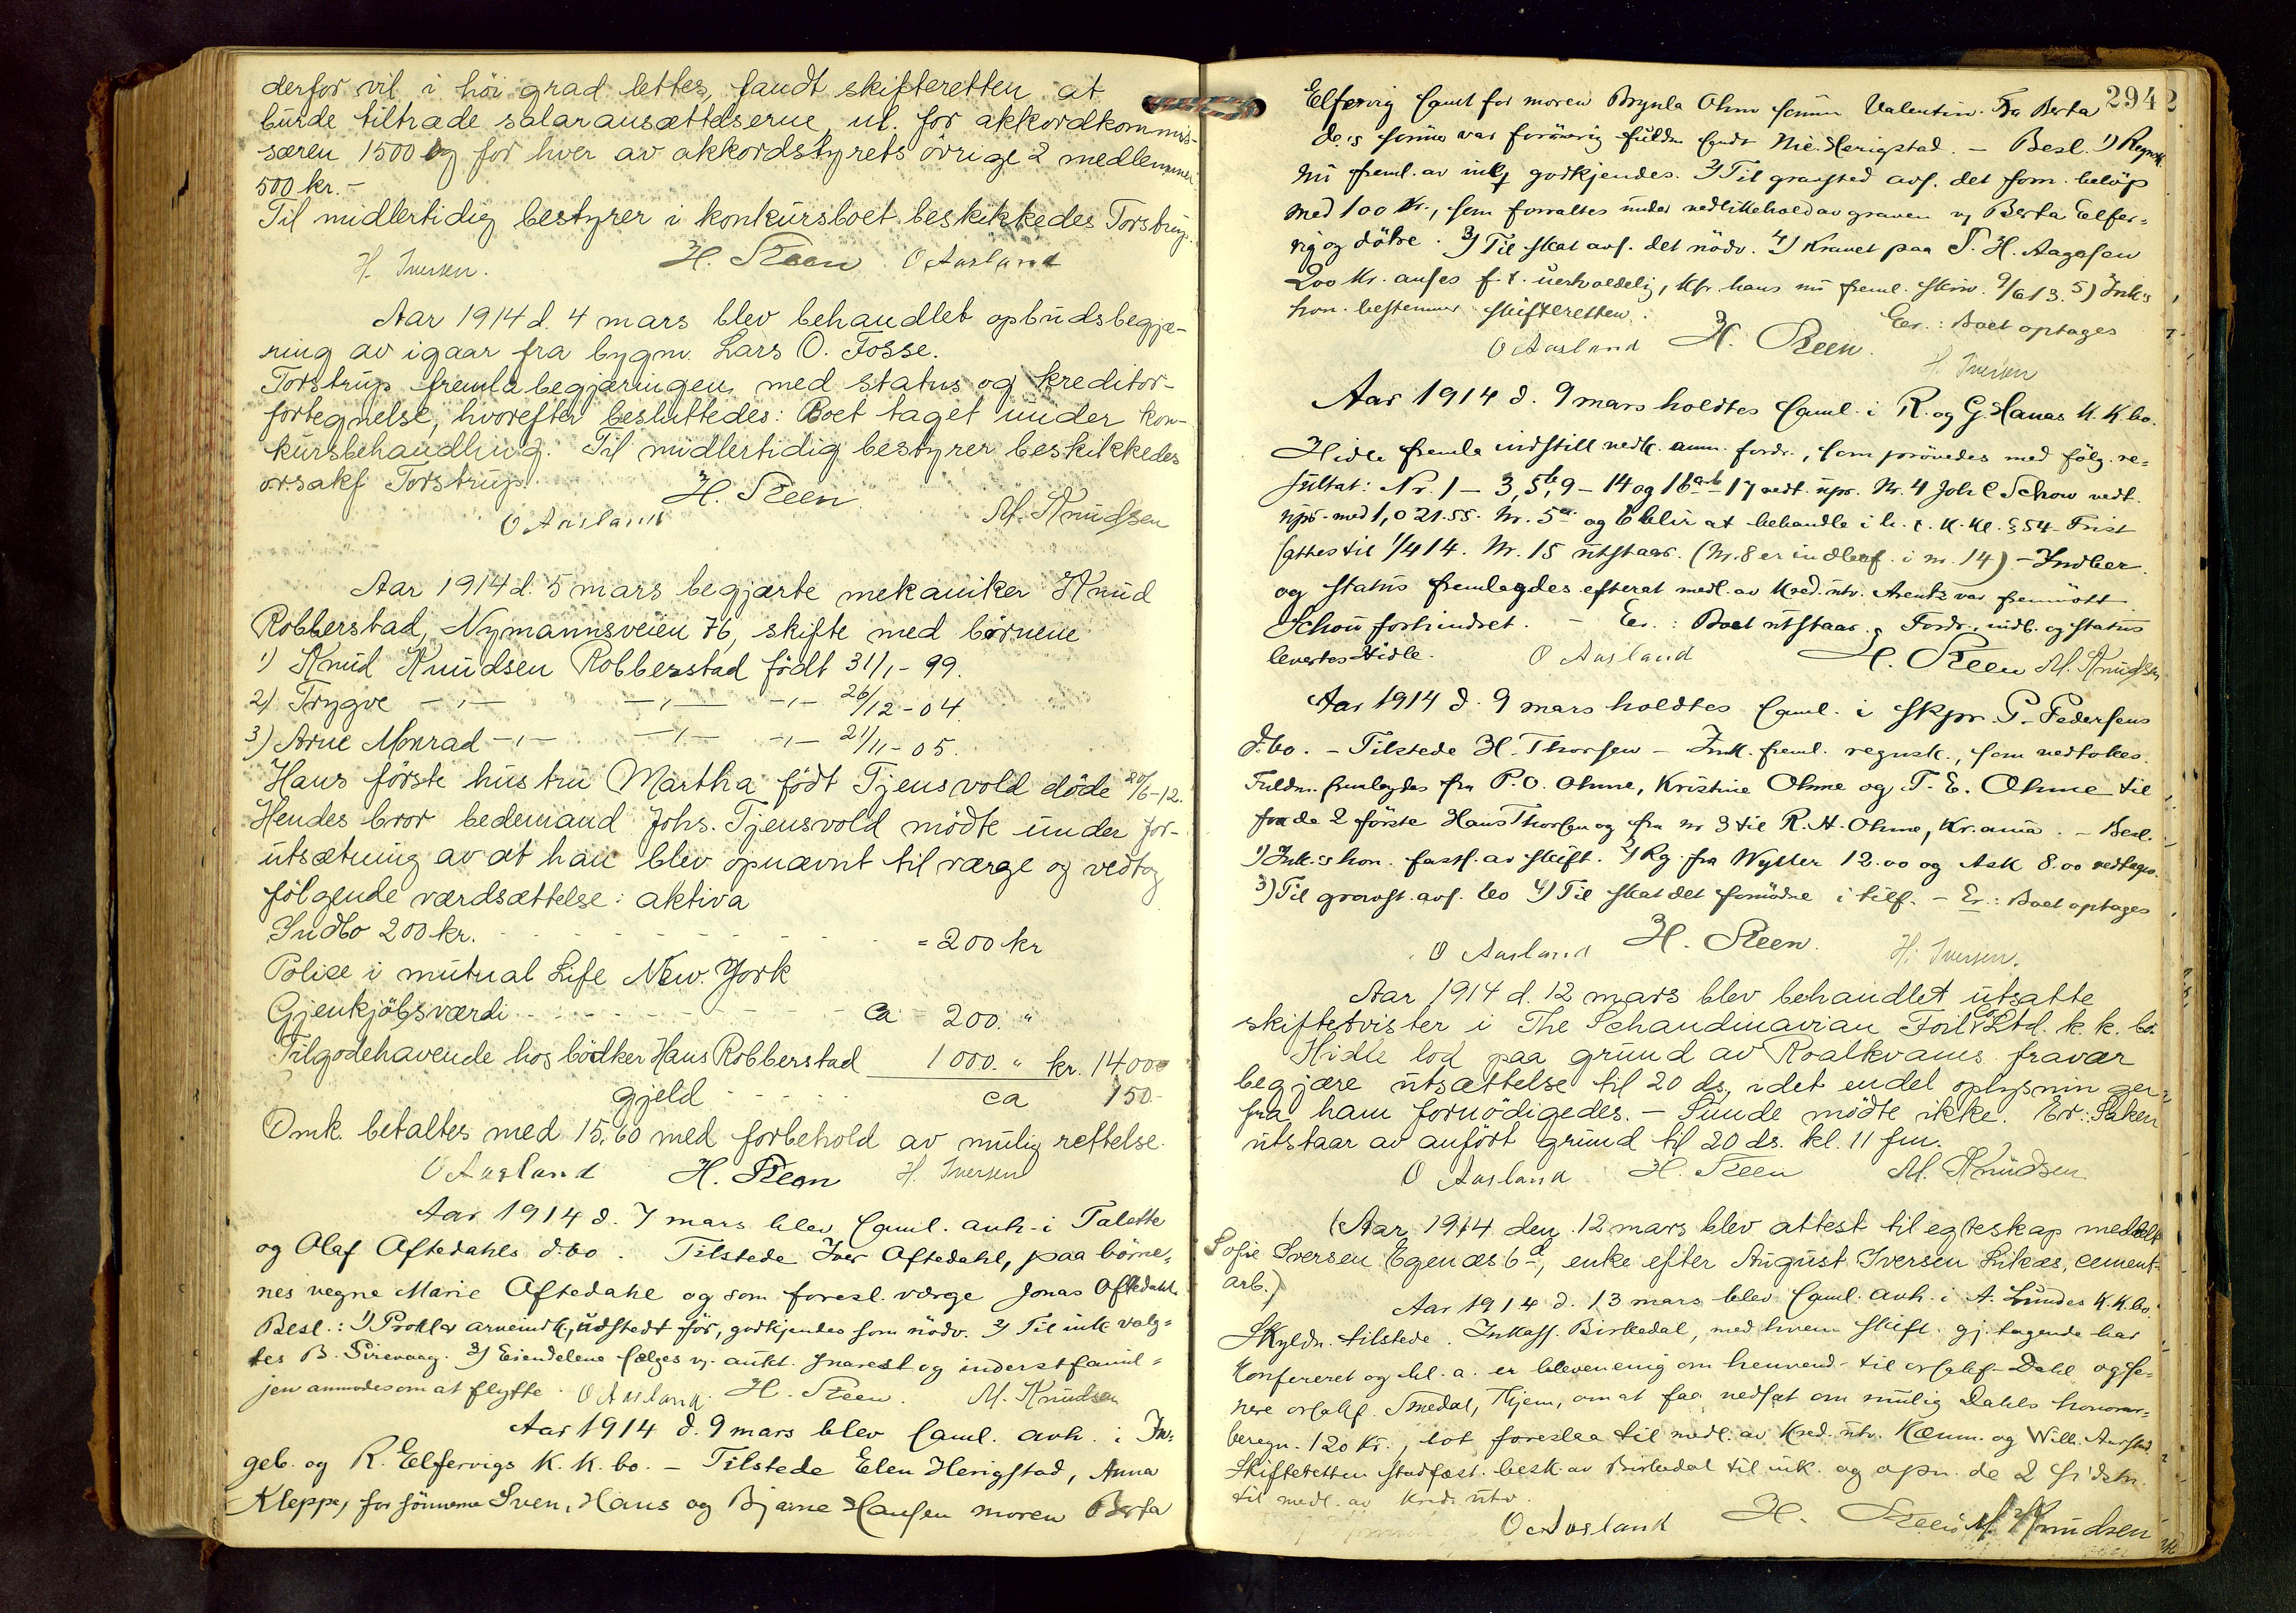 derfor vil i höi grad lettes, fandt skifteretten at
burde tiltræde salæransættelserne, nl. for akkordkommis-
særen 1500 og for hver av akkordstyrets övrige 2 medlemmer
500 kr. -
Til midlertidig bestyrer i konkursboet beskikkedes Torstrup.
H. Iversen. H. Steen O Aasland
Aar 1914 d. 4 mars blev behandlet opbudsbegjæ-
ring av igaar fra bygm. Lars O. Fosse.
Torstrup fremla begjæringen med status og kreditor-
fortegnelse, hvorefter besluttedes: Boet taget under kon-
kursbehandling. Til midlertidig bestyrer beskikkedes
orsakf Torstrup.
O Aasland H. Steen M. Knudsen
Aar 1914 d. 5 mars begjærte mekaniker Knud
Robberstad, Nymannsveien 76, skifte med børnene
1) Knud Knudsen Robberstad födt 31/1-99.
2) Trygve -,,- -,,- -,,- 26/12-04.
3) Arne Monrad -,,- -,,- -,,- 21/11-05.
Hans förste hustru Martha födt Tjensvold döde 20/6-12.
Hendes bror bedemand Johs. Tjensvold mödte under for-
utsætning av at han blev opnævnt til værge og vedtog
fölgende værdsættelse: aktiva
Indbo 200 kr. = 200 kr
Police i mutual Life New. York
Gjenkjöbsværdi ca 200. "
Tilgodehavende hos bödker Hans Robberstad 1000. " kr. 1400
gjeld ca 150-
Omk. betaltes med 15,60 med forbehold av mulig rettelse.
O Aasland H. Steen H. Iversen
Aar 1914 d. 7 mars blev saml. avh. i Talette
og Olaf Oftedahls d.bo. Tilstede Iver Oftedahl, paa börne-
nes vegne Marie Oftedahl og som foresl. værge Jonas Oftedahl.
Besl.: 1) Proklav arveindk, udstedt för, godkjendes som nödv. 2) Til ink valg-
tes B. Sirevaag. 3) Eiendelene sælges v. aukt. snarest og inderst famil-
jen anmodes om at flytte. O Aasland. H. Steen. M. Knudsen
Aar 1914 d. 9 mars blev saml. avh. i In-
geb. og R. Elfervigs K. K. bo. - Tilstede Elen Herigstad, Anna
Kleppe, for sönnerne Sven, Hans og Bjarne Hansen moren Berta
294
Elfervig samt for moren Brynla Ohm sönn Valentin. Fra Berta
de.s sönn var forövrig fuldm. sendt Nie. Herigstad. - Besl. 1) Regnsk.
nu freml. av ink godkjendes. 2) Til gravsted avs. det forn. belöp
med 100 kr., som forvaltes under vedlikehold av graven v. Berta Elfer-
vig og dötre. 3) Til skat avs. det nödv. 4) Kravet paa T. H. Aagesen
200 kr. anses f. t. uerholdelig, kfr. hans nu freml. skriv. 9/6 13. 5) Ink.s
hon. bestemmer skifteretten. Er.: Boet optages
O Aasland H. Steen. H. Iversen
Aar 1914 d. 9 mars holdtes saml. i R. og G. Hanas K. K. bo.
Hidle fremla indstill vedk. anm. fordr., som prövedes med fölg. re-
sultat: Nr. 1 - 3, 5b, 9 - 14 og 16 a-b - 17 vedt. upr. Nr. 4 Joh C Schow vedt.
upr. med 1,021.55. Nr. 5a og 6 blir at behandle i h. t. K. Kl. § 54 Frist
sættes til 1/4 14. Nr. 15 utstaar. (Nr. 8 er indbef. i nr. 14) - Indber.
og status fremlagdes efterat medl. av kred. utv. Arentz var fremmött
Schou forhindret. - Er.: Boet utstaar. Fordr., indb. og status
levertes Hidle. O Aasland H. Steen M. Knudsen
Aar 1914 d. 9 mars holdtes saml. i skpr. P. Pedersens
d.bo. - Tilstede H. Thorsen - Ink. freml. regnsk., som vedtokes.
Fuldm. fremlagdes fra P. O. Ohme, Kristine Ohme og T. E. Ohme til
fra de 2 förste Hans Thorsen og fra nr 3 til R. H. Ohme, Kr.ania. - Besl.
1) Ink.s hon. fasts. av skift. 2) Rg. fra Wyller 12.00 og Ask 8.00 vedtages.
3) Til gravst. avs. 60 4) Til skat det fornödne i tilf. - Er.: Boet optages
O Aasland H. Steen. H. Iversen.
Aar 1914 d. 12 mars blev behandlet utsatte
skiftetvister i The Schandinavian Foil Co Ltd. k. k. bo.
Hidle lod paa grund av Roalkvams fravær
begjære utsættelse til 20 ds, idet endel oplysninger
fra ham fornödigedes. - Sunde mödte ikke. Er: Saken
utstaar av anfört grund til 20 ds. kl. 11 fm.
O Aasland H. Steen M. Knudsen
(Aar 1914 den 12 mars blev attest til egteskap meddelt
Sofie Iversen Egenæs 6d, enke efter August Iversen Litæs, cement-
arb.)
Aar 1914 d. 13 mars blev saml. avh. i A. Lundes K.K.bo.
Skyldn. tilstede. Inkass. Birkedal, med hvem skift. gj. tagende har
Konfereret og bl. a. er bleven enig om henvend. til orsakf. Dahl og se-
nere orsakf. Smedal, Hjem, om at faa nedsat om mulig Dahls honorar-
beregn. 120 kr., lot foreslaa til medl. av Kred. utv. Kæmn. og Wilh. Aarstad.
Skifteretten stadfæst. besk. av Birkedal til ink. og opn. de 2 sidstn.
til medl. av kred. utv.
O Aasland H. Steen M. Knudsen